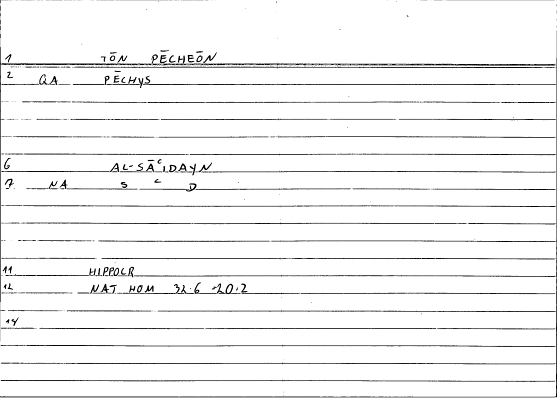 1 TŌN PĒCHEŌN
2 QA PĒCHYS
6 AL-SĀʿIDAYN
7 NA S ʿ D
11 HIPPOCR
12 NAT HOM 32.6 -20.2
14